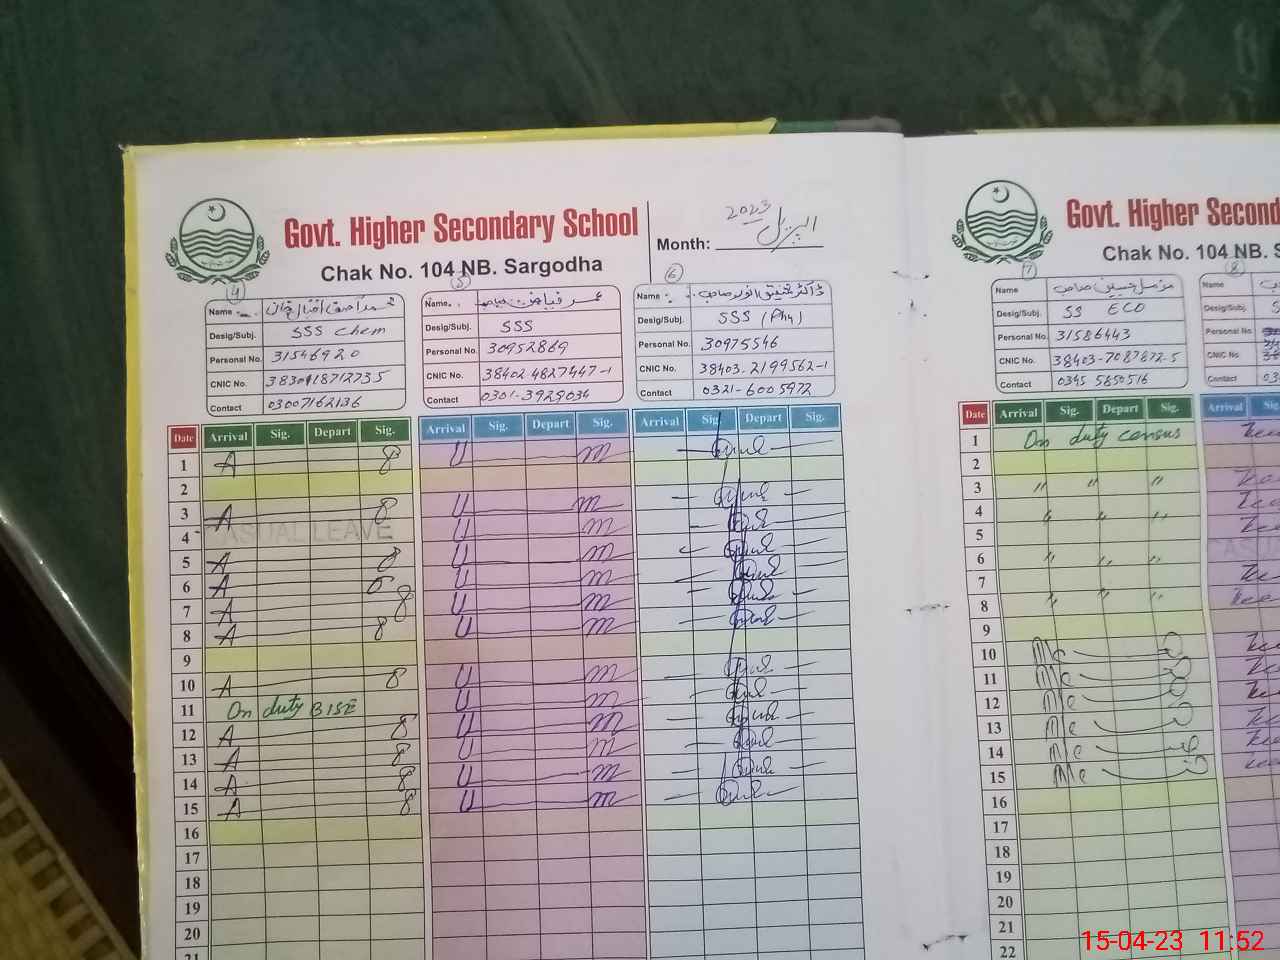 Govt. Higher Secondary School
Chak No. 104 NB. Sargodha
Month: اپریل 2023
4
Name
Desig/Subj. SSS Chem
Personal No. 31546920
CNIC No. 3830418712735
Contact 03007162136
5
Name عمر فیاض
Desig/Subj. SSS
Personal No. 30952869
CNIC No. 38402-4827447-1
Contact 0301-3929034
6
Name ڈاکٹر صاحب
Desig/Subj. SSS (Phy)
Personal No. 30975546
CNIC No. 38403-2199562-1
Contact 0321-6005972
Date Arrival Sig. Depart Sig. Arrival Sig. Depart Sig. Arrival Sig. Depart Sig.
1 A 8 U m
2
3 A 8 U m
4 CASUAL LEAVE U m
5 A 8 U m
6 A 8 U m
7 A 8 U m
8 A 8 U m
9
10 A 8 U m
11 On duty BISE U m
12 A 8 U m
13 A 8 U m
14 A 8 U m
15 A 8 U m
16
17
18
19
20
21
Govt. Higher Second
Chak No. 104 NB. S
7
Name مزمل حسین صاحب
Desig/Subj. SS ECO
Personal No. 31586443
CNIC No. 38403-7087872-5
Contact 0345 5850516
8
Name
Desig/Subj.
Personal No.
CNIC No.
Contact 03
Date Arrival Sig. Depart Sig. Arrival Sig
1 On duty census
2
3 " " "
4
5 " " "
6 " " "
7
8 " " "
9
10 Me
11 Me
12 Me
13 Me
14 Me
15 Me
16
17
18
19
20
21
22
15-04-23 11:52